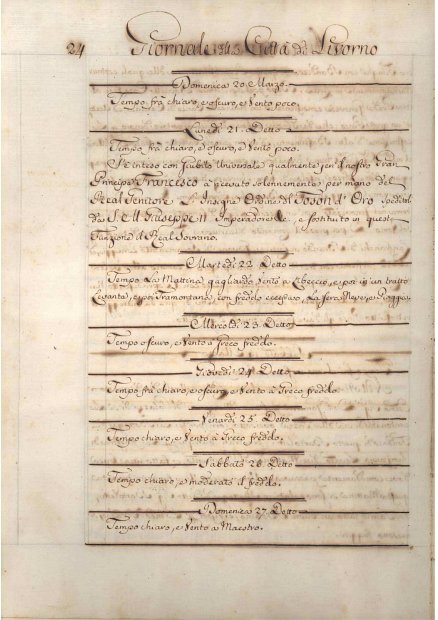 24
Giornale della Città di Livorno
Domenica 20 Marzo.
Tempo frà chiaro, e oscuro, e Vento poco.
Lunedì 21. Detto
Tempo frà chiaro, e oscuro, e Vento poco.
Si è inteso con Giubilo Universale qualmente jeri il nostro Gran
Principe Francesco à ricevuto solennemente per mano del
Real Genitore l'Insigne Ordine del Toson d'Oro
dà S. e M. Giuseppe II Imperadore e sostituto in questa
Funzione il Real Sovrano.
Martedì 22 Detto
Tempo La Mattina gagliardo Vento à Libeccio, e poi in un tratto
Levante, e poi Tramontano, con freddo eccessivo. La sera Neve, e Pioggia.
Mercoldì 23. Detto
Tempo oscuro, e Vento à Greco freddo.
Giovedì 24 Detto
Tempo frà chiaro, e oscuro, e Vento à Greco freddo.
Venardì 25. Detto
Tempo chiaro, e Vento à Greco freddo.
Sabbato 26. Detto
Tempo chiaro, e moderato il freddo.
Domenica 27. Detto
Tempo chiaro, e Vento a Maestro.